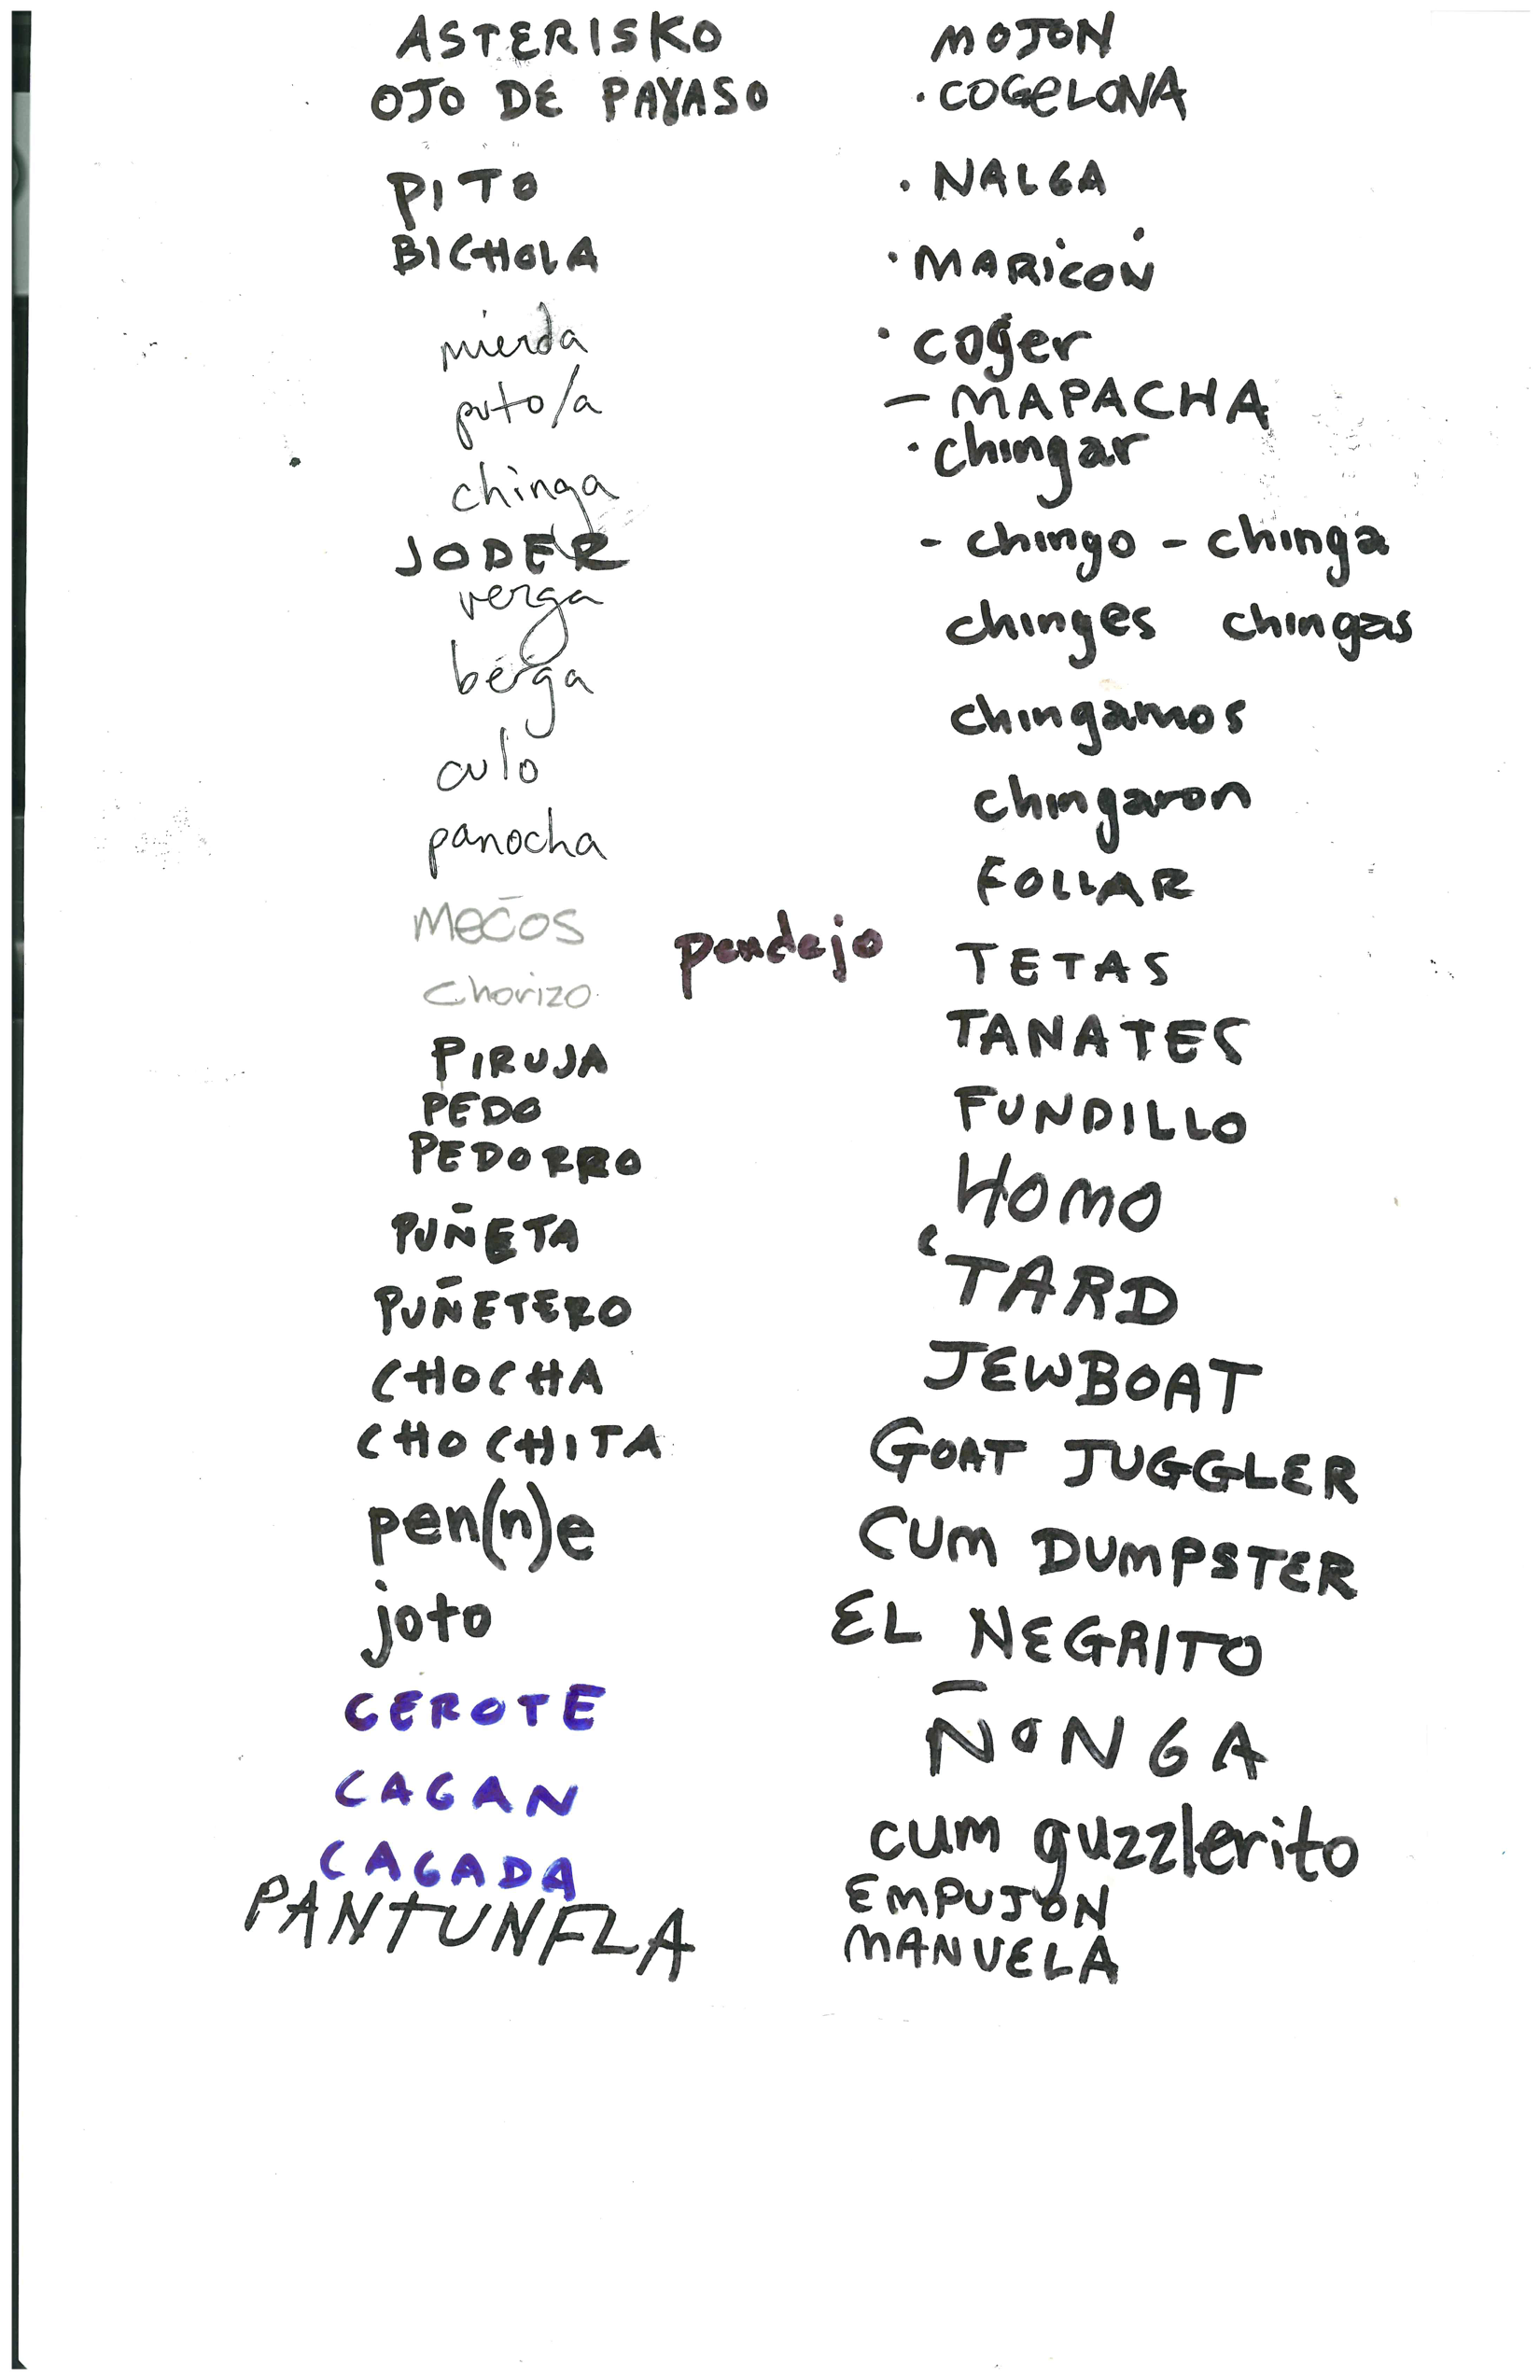 ASTERISKO
OJO DE PAYASO
PITO
BICHOLA
mierda
puto/a
chinga
JODER
verga
berga
culo
panocha
MECOS
chorizo
PIRUJA
PEDO
PEDORRO
PUÑETA
PUÑETERO
CHOCHA
CHOCHITA
pen(n)e
joto
CEROTE
CAGAN
CAGADA
PANTUNFLA
pendejo
MOJON
· COGELONA
· NALGA
· MARICON
· coger
- MAPACHA
· chingar
- chingo - chinga
chinges chingas
chingamos
chingaron
FOLLAR
TETAS
TANATES
FUNDILLO
HOMO
'TARD
JEWBOAT
GOAT JUGGLER
CUM DUMPSTER
EL NEGRITO
ÑONGA
cum guzzlerito
EMPUJON
MANUELA